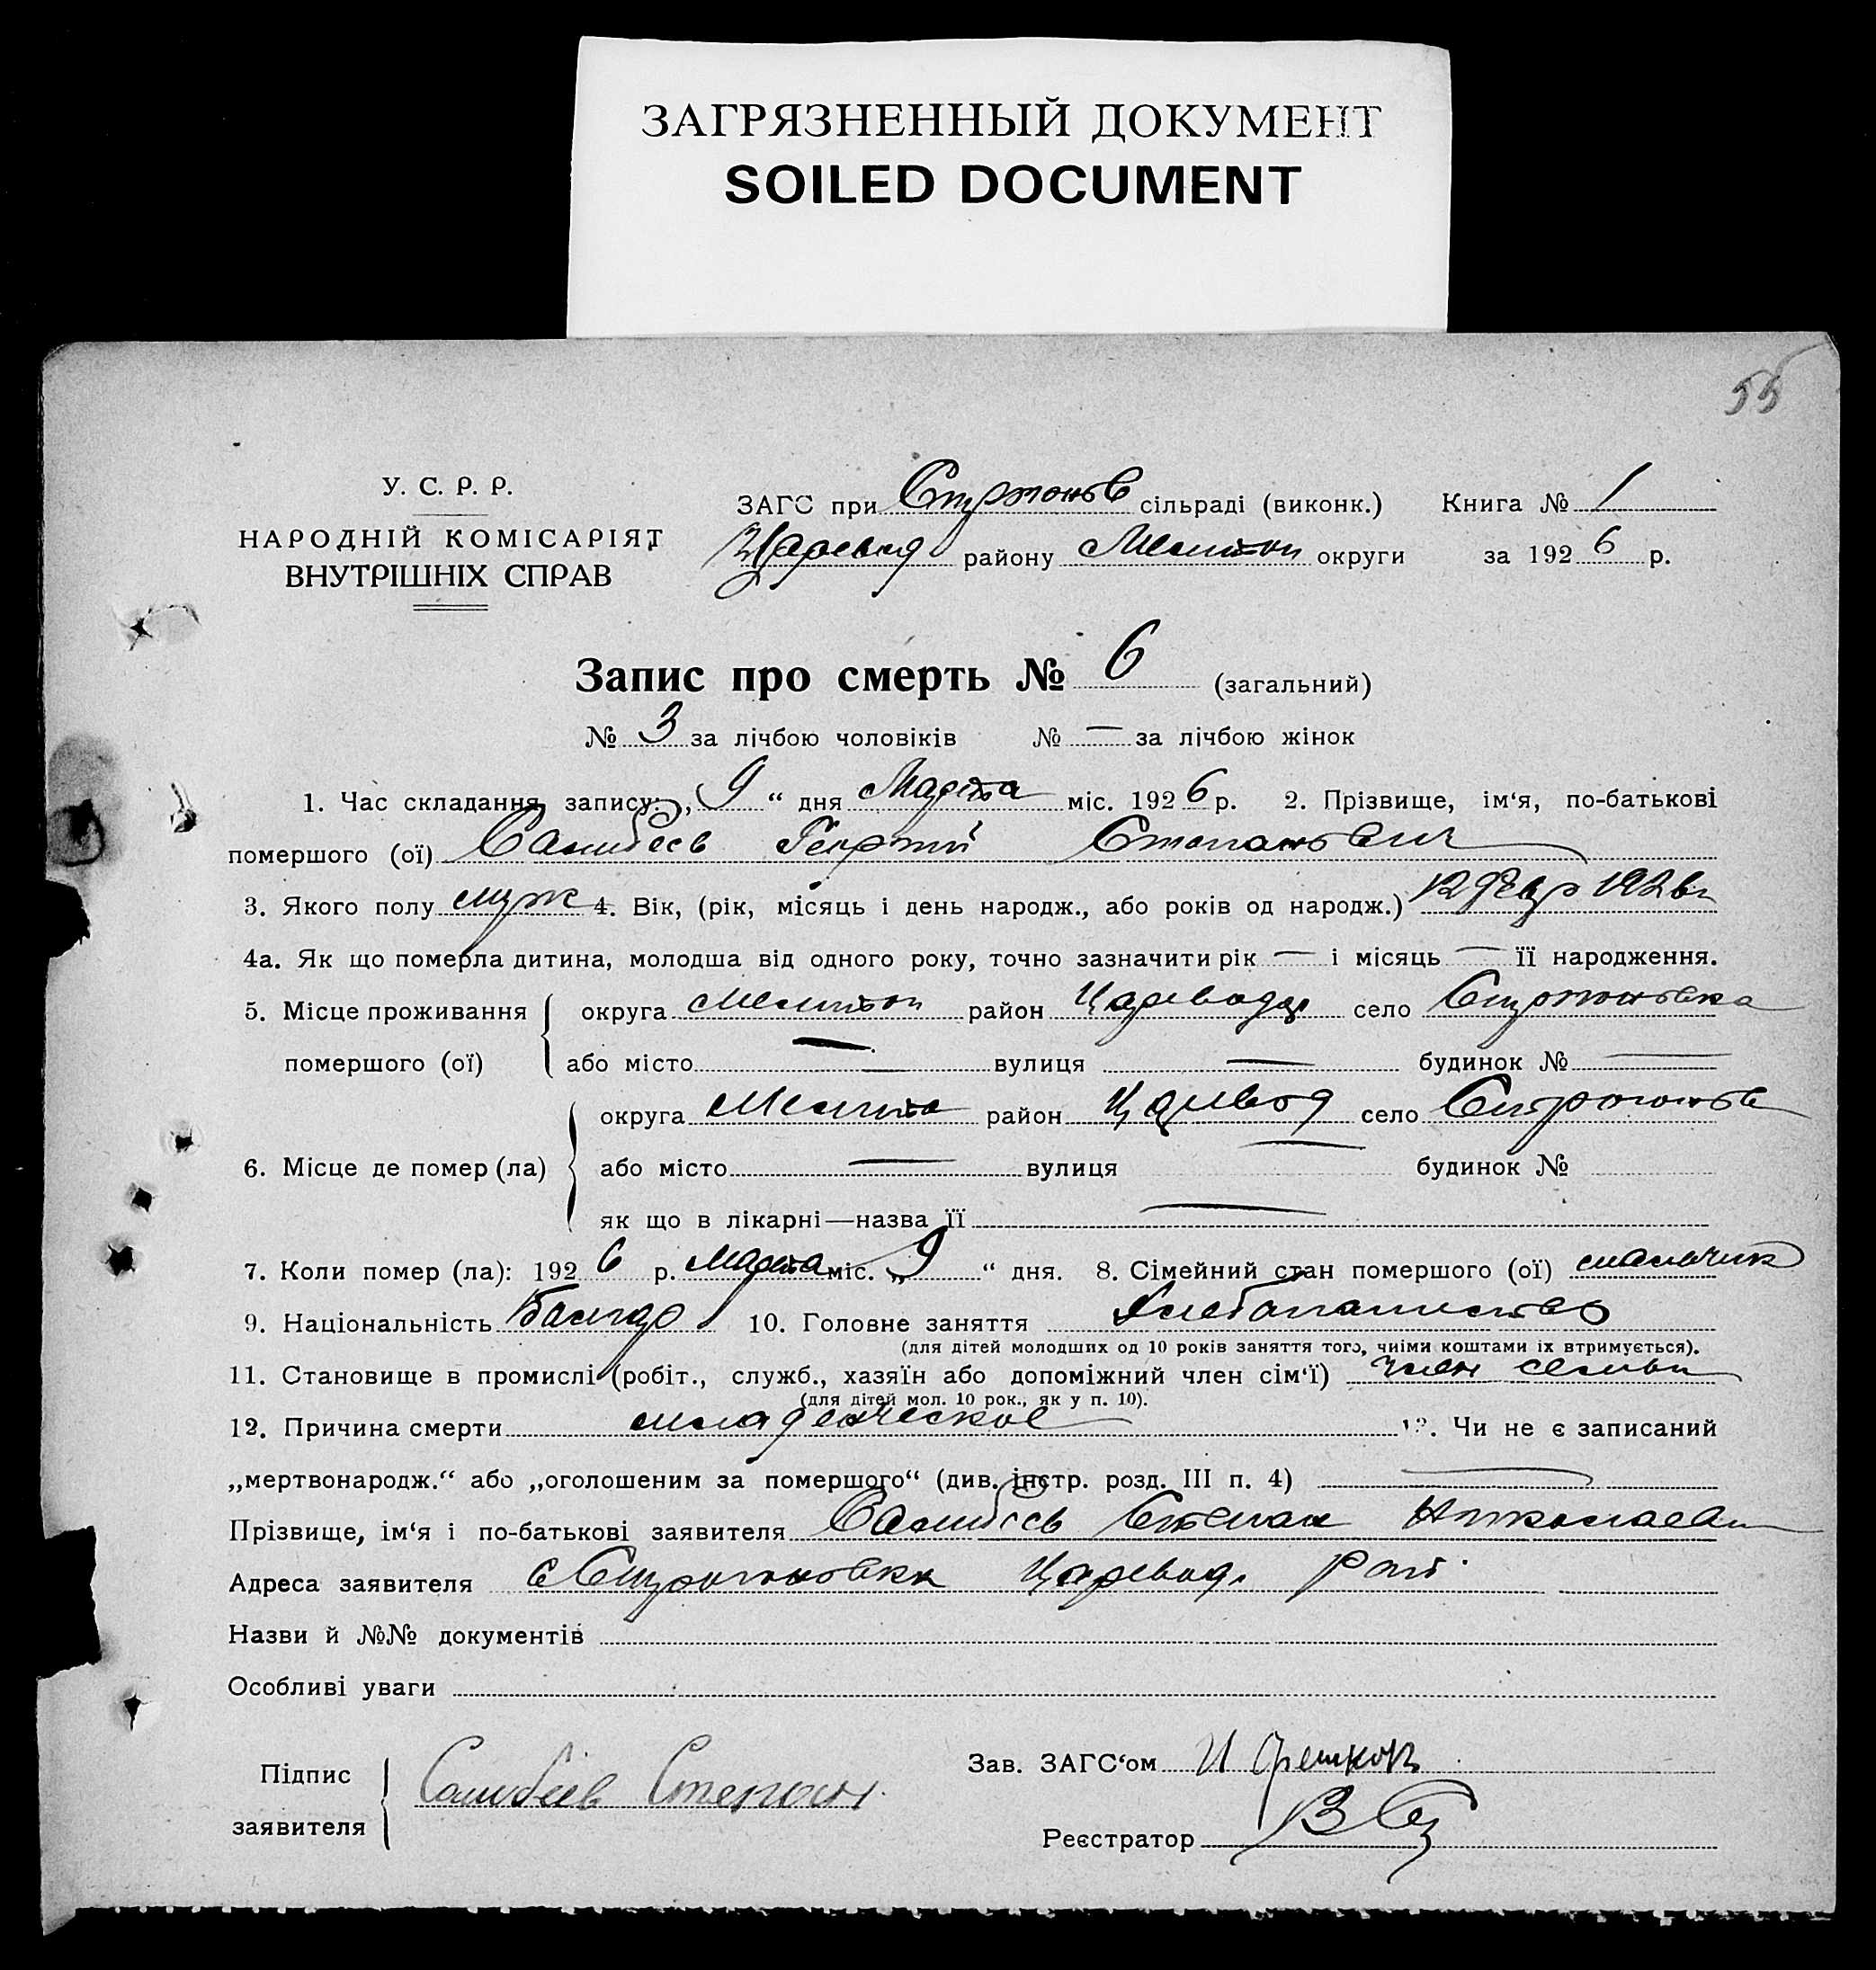 ЗАГРЯЗНЕННЫЙ ДОКУМЕНТ
SOILED DOCUMENT
55
У. С. Р. Р.
НАРОДНІЙ КОМІСАРІЯТ
ВНУТРІШНІХ СПРАВ
ЗАГС при сільраді (виконк.) Книга № 1
Царевод району Мелитоп округи за 1926 р.
Запис про смерть № 6 (загальний)
№ 3 за лічбою чоловіків № — за лічбою жінок
1. Час складання запису: „9“ дня Марта міс. 1926 р. 2. Прізвище, ім‘я, по-батькові
помершого (ої) Самибеев Георгий Степанович
3. Якого полу муж 4. Вік, (рік, місяць і день народж., або років од народж.) 12 Февр 1926 г
4а. Як що померла дитина, молодша від одного року, точно зазначити рік — і місяць — її народження.
5. Місце проживання округа Мелитоп район Царевод село Строгоновка
помершого (ої) або місто — вулиця — будинок № —
округа Мелито район Царевод село Строгонов
6. Місце де помер (ла) або місто — вулиця — будинок №
як що в лікарні—назва її —
7. Коли помер (ла): 1926 р. Марта міс. „9“ дня. 8. Сімейний стан помершого (ої) мальчик
9. Національність Болгар 10. Головне заняття Хлебопашество
(для дітей молодших од 10 років заняття того, чиїми коштами їх втримується).
11. Становище в промислі (робіт., служб., хазяїн або допоміжний член сім‘ї) член семьи
(для дітей мол. 10 рок., як у п. 10).
12. Причина смерти младенческое 13. Чи не є записаний
„мертвонародж.“ або „оголошеним за помершого“ (див. інстр. розд. III п. 4) —
Прізвище, ім‘я і по-батькові заявителя Самибеев Степан Николаев
Адреса заявителя с Строгоновка Царевод. Рай.
Назви й №№ документів
Особливі уваги
Підпис
заявителя
Самибеев Степан.
Зав. ЗАГС‘ом
Реєстратор